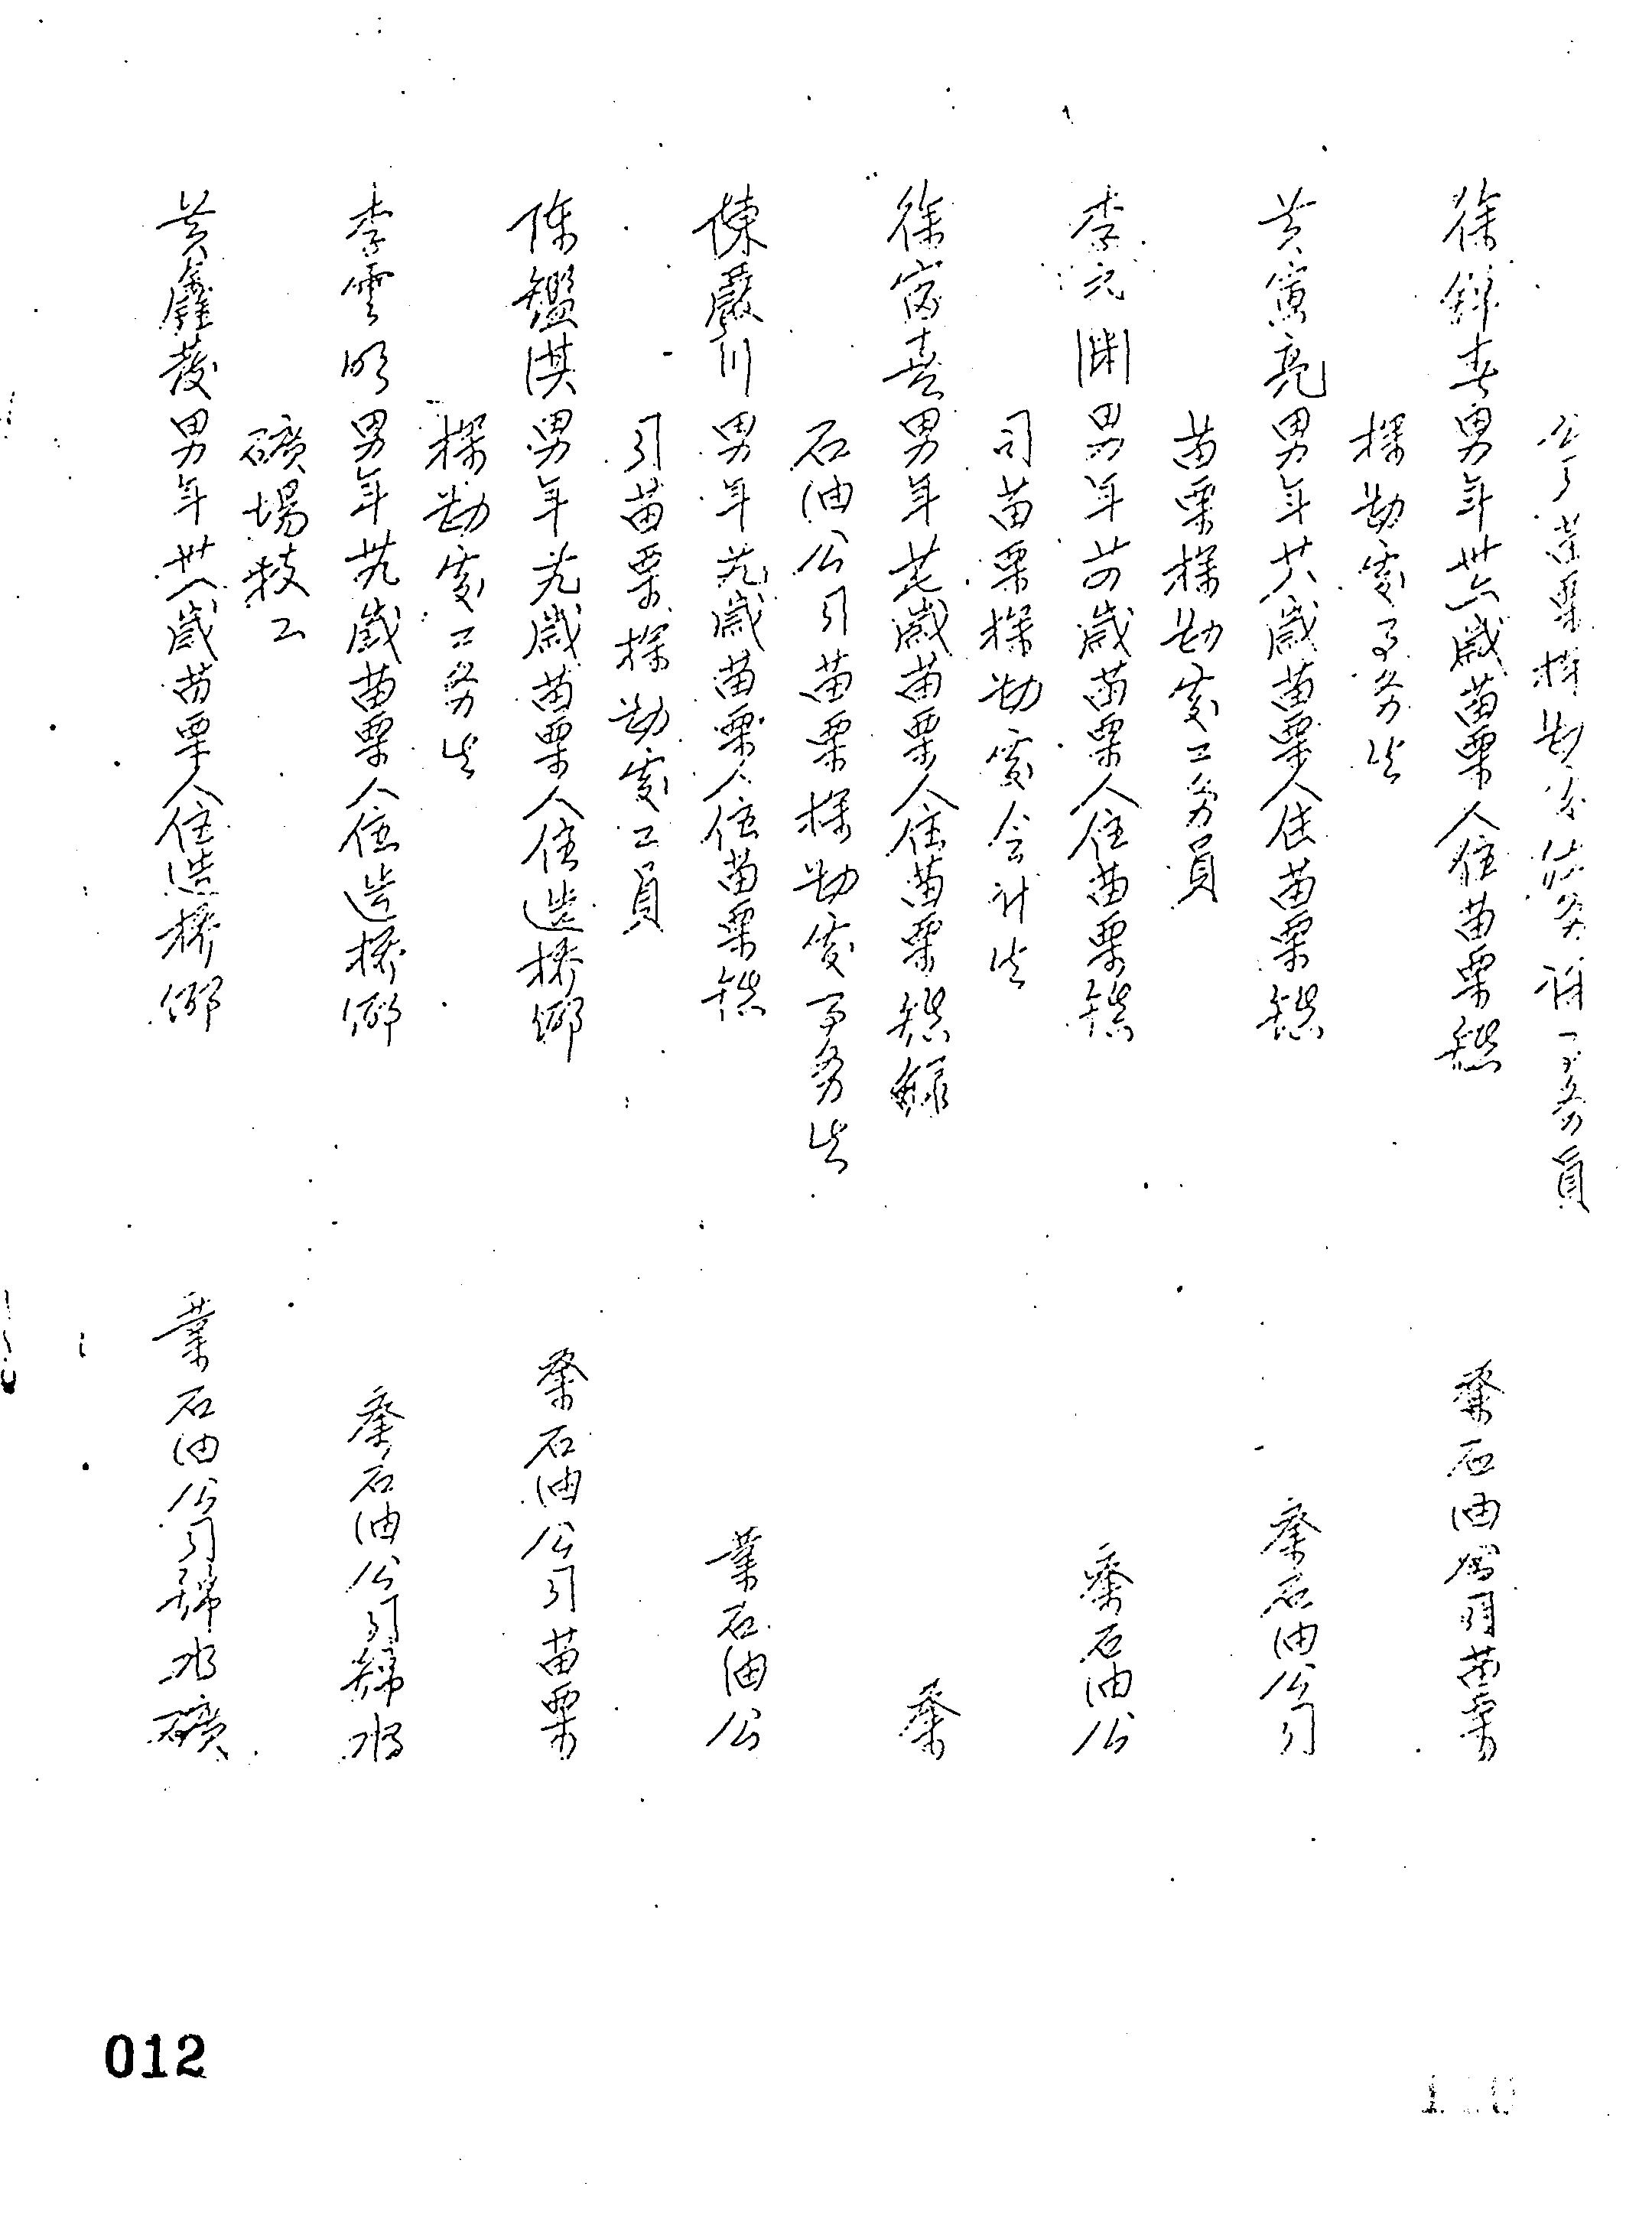 公司苗栗探勘處
員
徐錦春男年卅六歲苗栗人住苗栗鎮 業石油公司苗栗
探勘處事務員
黃寅亮男年廿八歲苗栗人住苗栗鎮 業石油公司
苗栗探勘處工務員
李元淵男年歲苗栗人住苗栗鎮 業石油公
司苗栗探勘處会計員
徐富喜男年歲苗栗人住苗栗鎮 業
石油公司苗栗探勘處事務員
陳嚴川男年歲苗栗人住苗栗鎮 業石油公
司苗栗探勘處工員
陈鑑淇男年歲苗栗人住造橋鄉 業石油公司苗栗
探勘處工務員
李雲明男年歲苗栗人住造橋鄉 業石油公司錦水
礦場技工
黃鑫發男年卅八歲苗栗人住造橋鄉 業石油公司錦水礦
012